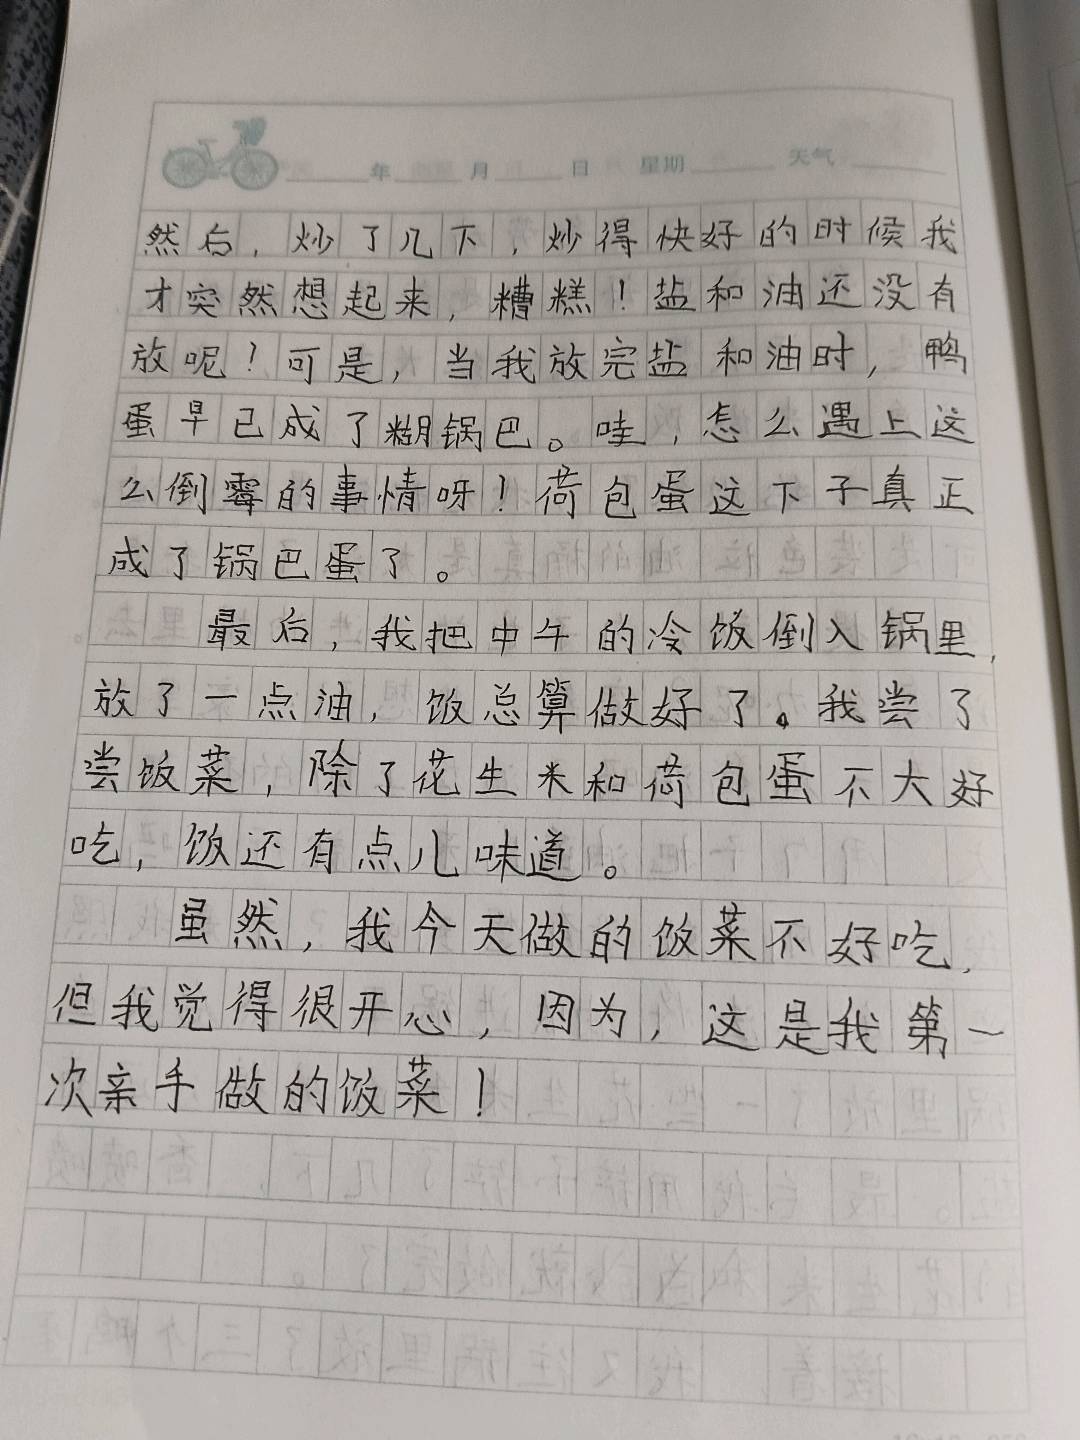 年 月 日 星期 天气
然后，炒了几下，炒得快好的时候我
才突然想起来，糟糕！盐和油还没有
放呢！可是，当我放完盐和油时，鸭
蛋早已成了糊锅巴。哇，怎么遇上这
么倒霉的事情呀！荷包蛋这下子真正
成了锅巴蛋了。
最后，我把中午的冷饭倒入锅里，
放了一点油，饭总算做好了。我尝了
尝饭菜，除了花生米和荷包蛋不大好
吃，饭还有点儿味道。
虽然，我今天做的饭菜不好吃，
但我觉得很开心，因为，这是我第一
次亲手做的饭菜！